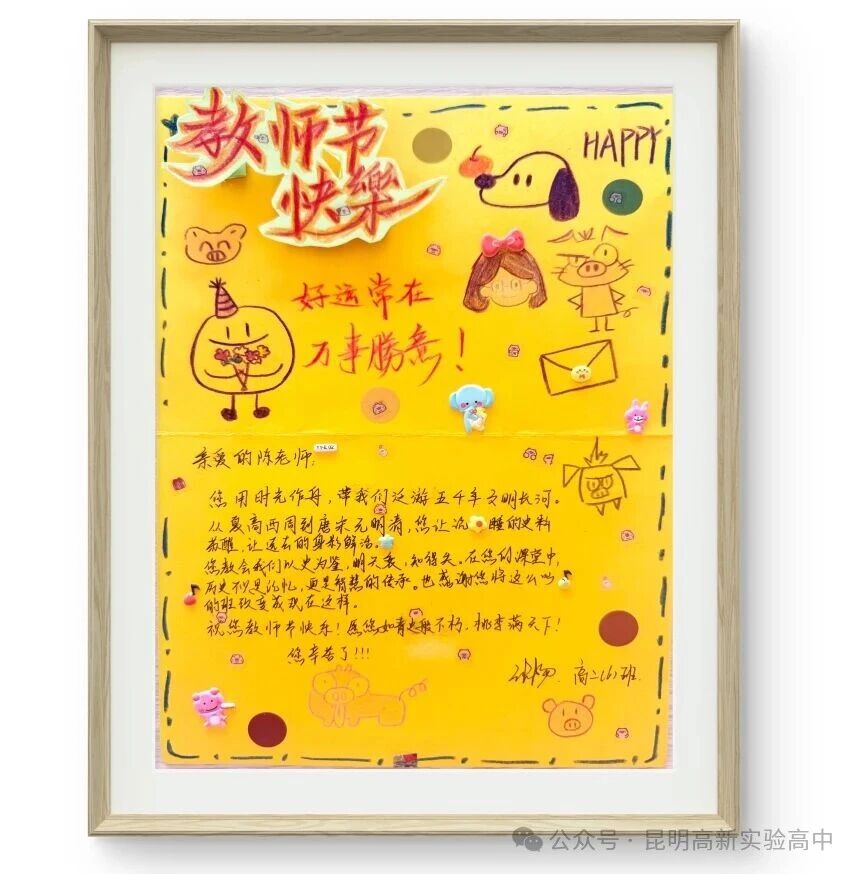 教师节
快樂
HAPPY
好运常在
万事勝意！
亲爱的陈老师：
您用时光作舟，带我们泛游五千年文明长河。
从夏商西周到唐宋元明清，您让沉睡的史料
苏醒，让远去的身影鲜活。
您教会我们以史为鉴，明兴衰，知得失。在您的课堂中，
历史不仅是记忆，更是智慧的传承。也感谢您将这么
的班改变成现在这样。
祝您教师节快乐！愿您如青史般不朽，桃李满天下！
您辛苦了!!!
高二班.
公众号·昆明高新实验高中